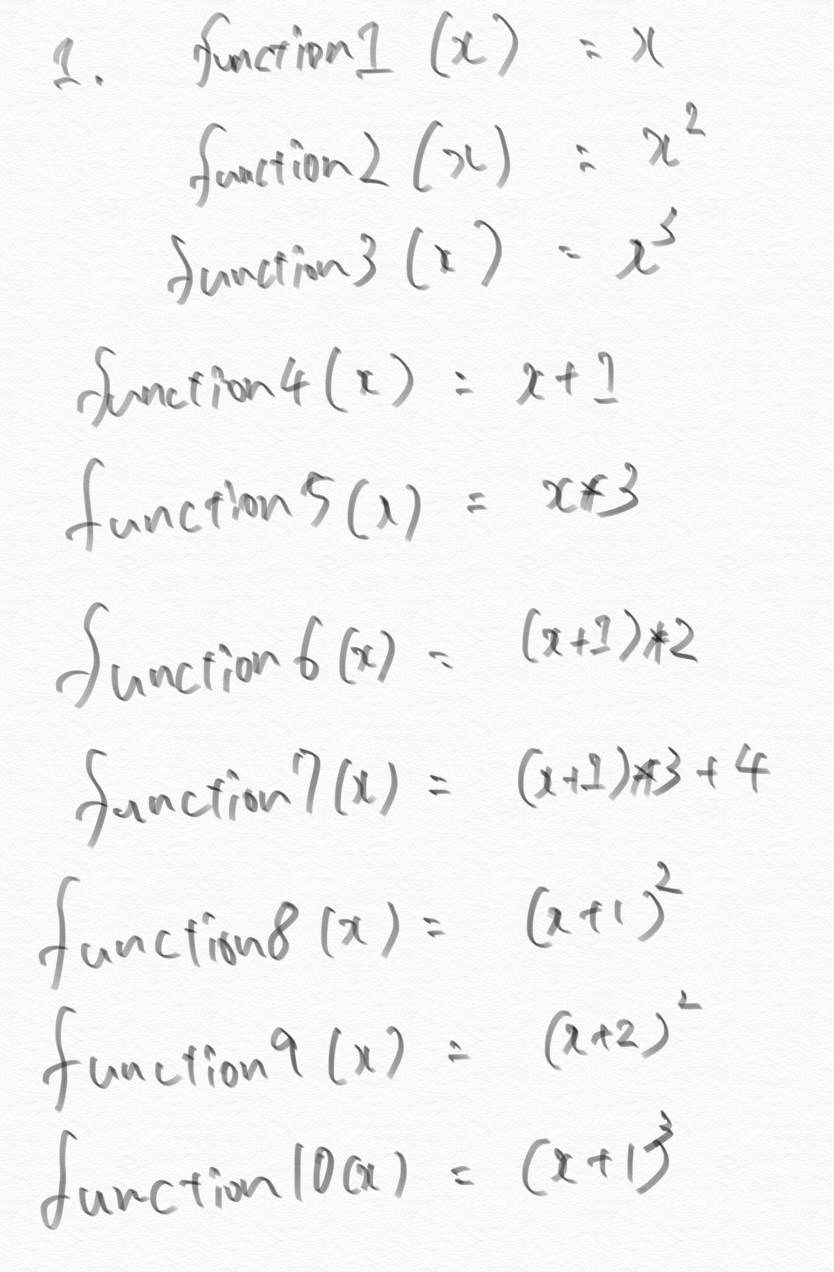 1. function1 (x) = x
function2 (x) = x²
function3 (x) = x³
function4 (x) = x+1
function5 (x) = x*3
function6 (x) = (x+1)*2
function7 (x) = (x+1)*3+4
function8 (x) = (x+1)²
function9 (x) = (x+2)²
function10(x) = (x+1)³